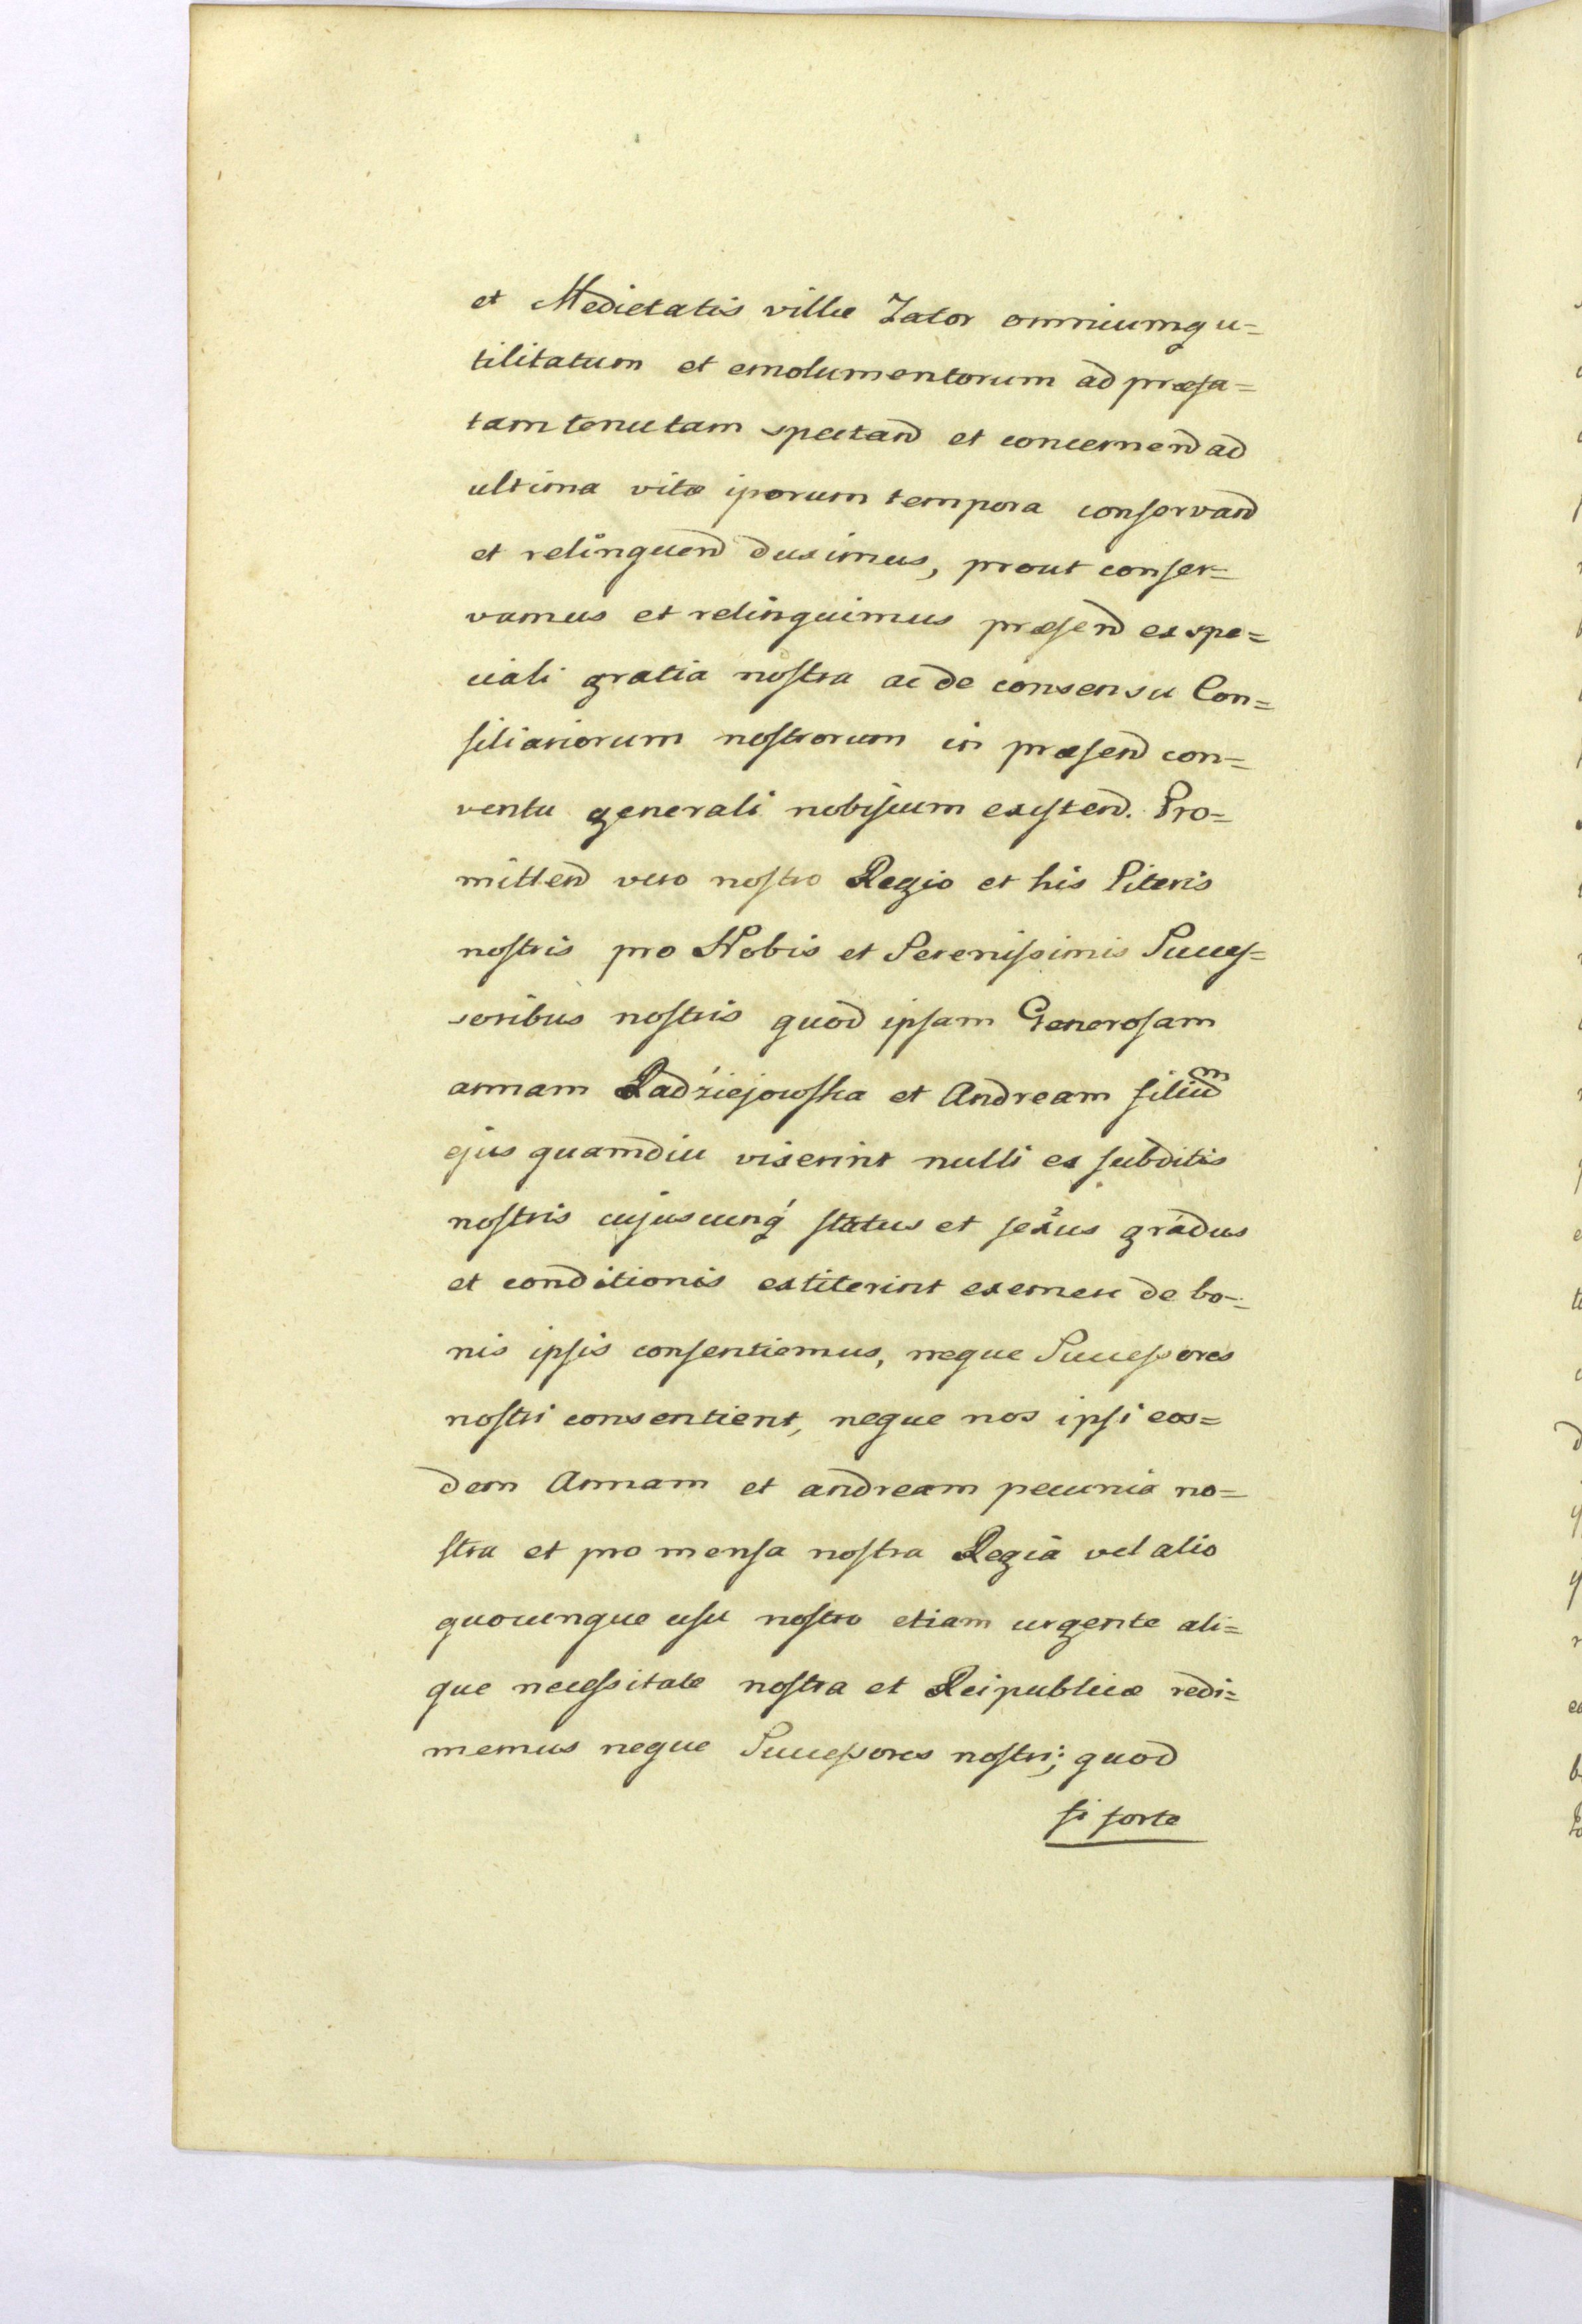 et Medietatis villæ Zator omniumq u=
tilitatum et emolumentorum ad præfa=
tam tenutam spectand et concernend ad
ultima vitæ iporum tempora conservand
et relinquend duximus, prout conser=
vamus et relinquimus præsend ex spe=
ciali gratia nostra ac de consensu Con=
siliariorum nostrorum in præsend con=
ventu generali nobiscum existend. Pro=
mittend vero nostro Regio et his Literis
nostris pro Nobis et Serenissimis Succes=
soribus nostris quod ipsam Generosam
annam Radziejowska et Andream filium
ejus quamdiu vixerint nulli ex subditis
nostris cujuscunq́ status et sexus gradus
et conditionis extiterint exemere de bo=
nis ipsis consentiemus, neque Successores
nostri consentient, neque nos ipsi eos=
dem Annam et andream pecunia no=
stra et pro mensa nostra Regia vel alio
quocunque usu nostro etiam urgente ali=
que necessitate nostra et Reipublicæ redi=
memus neque Successores nostri; quod
si forte